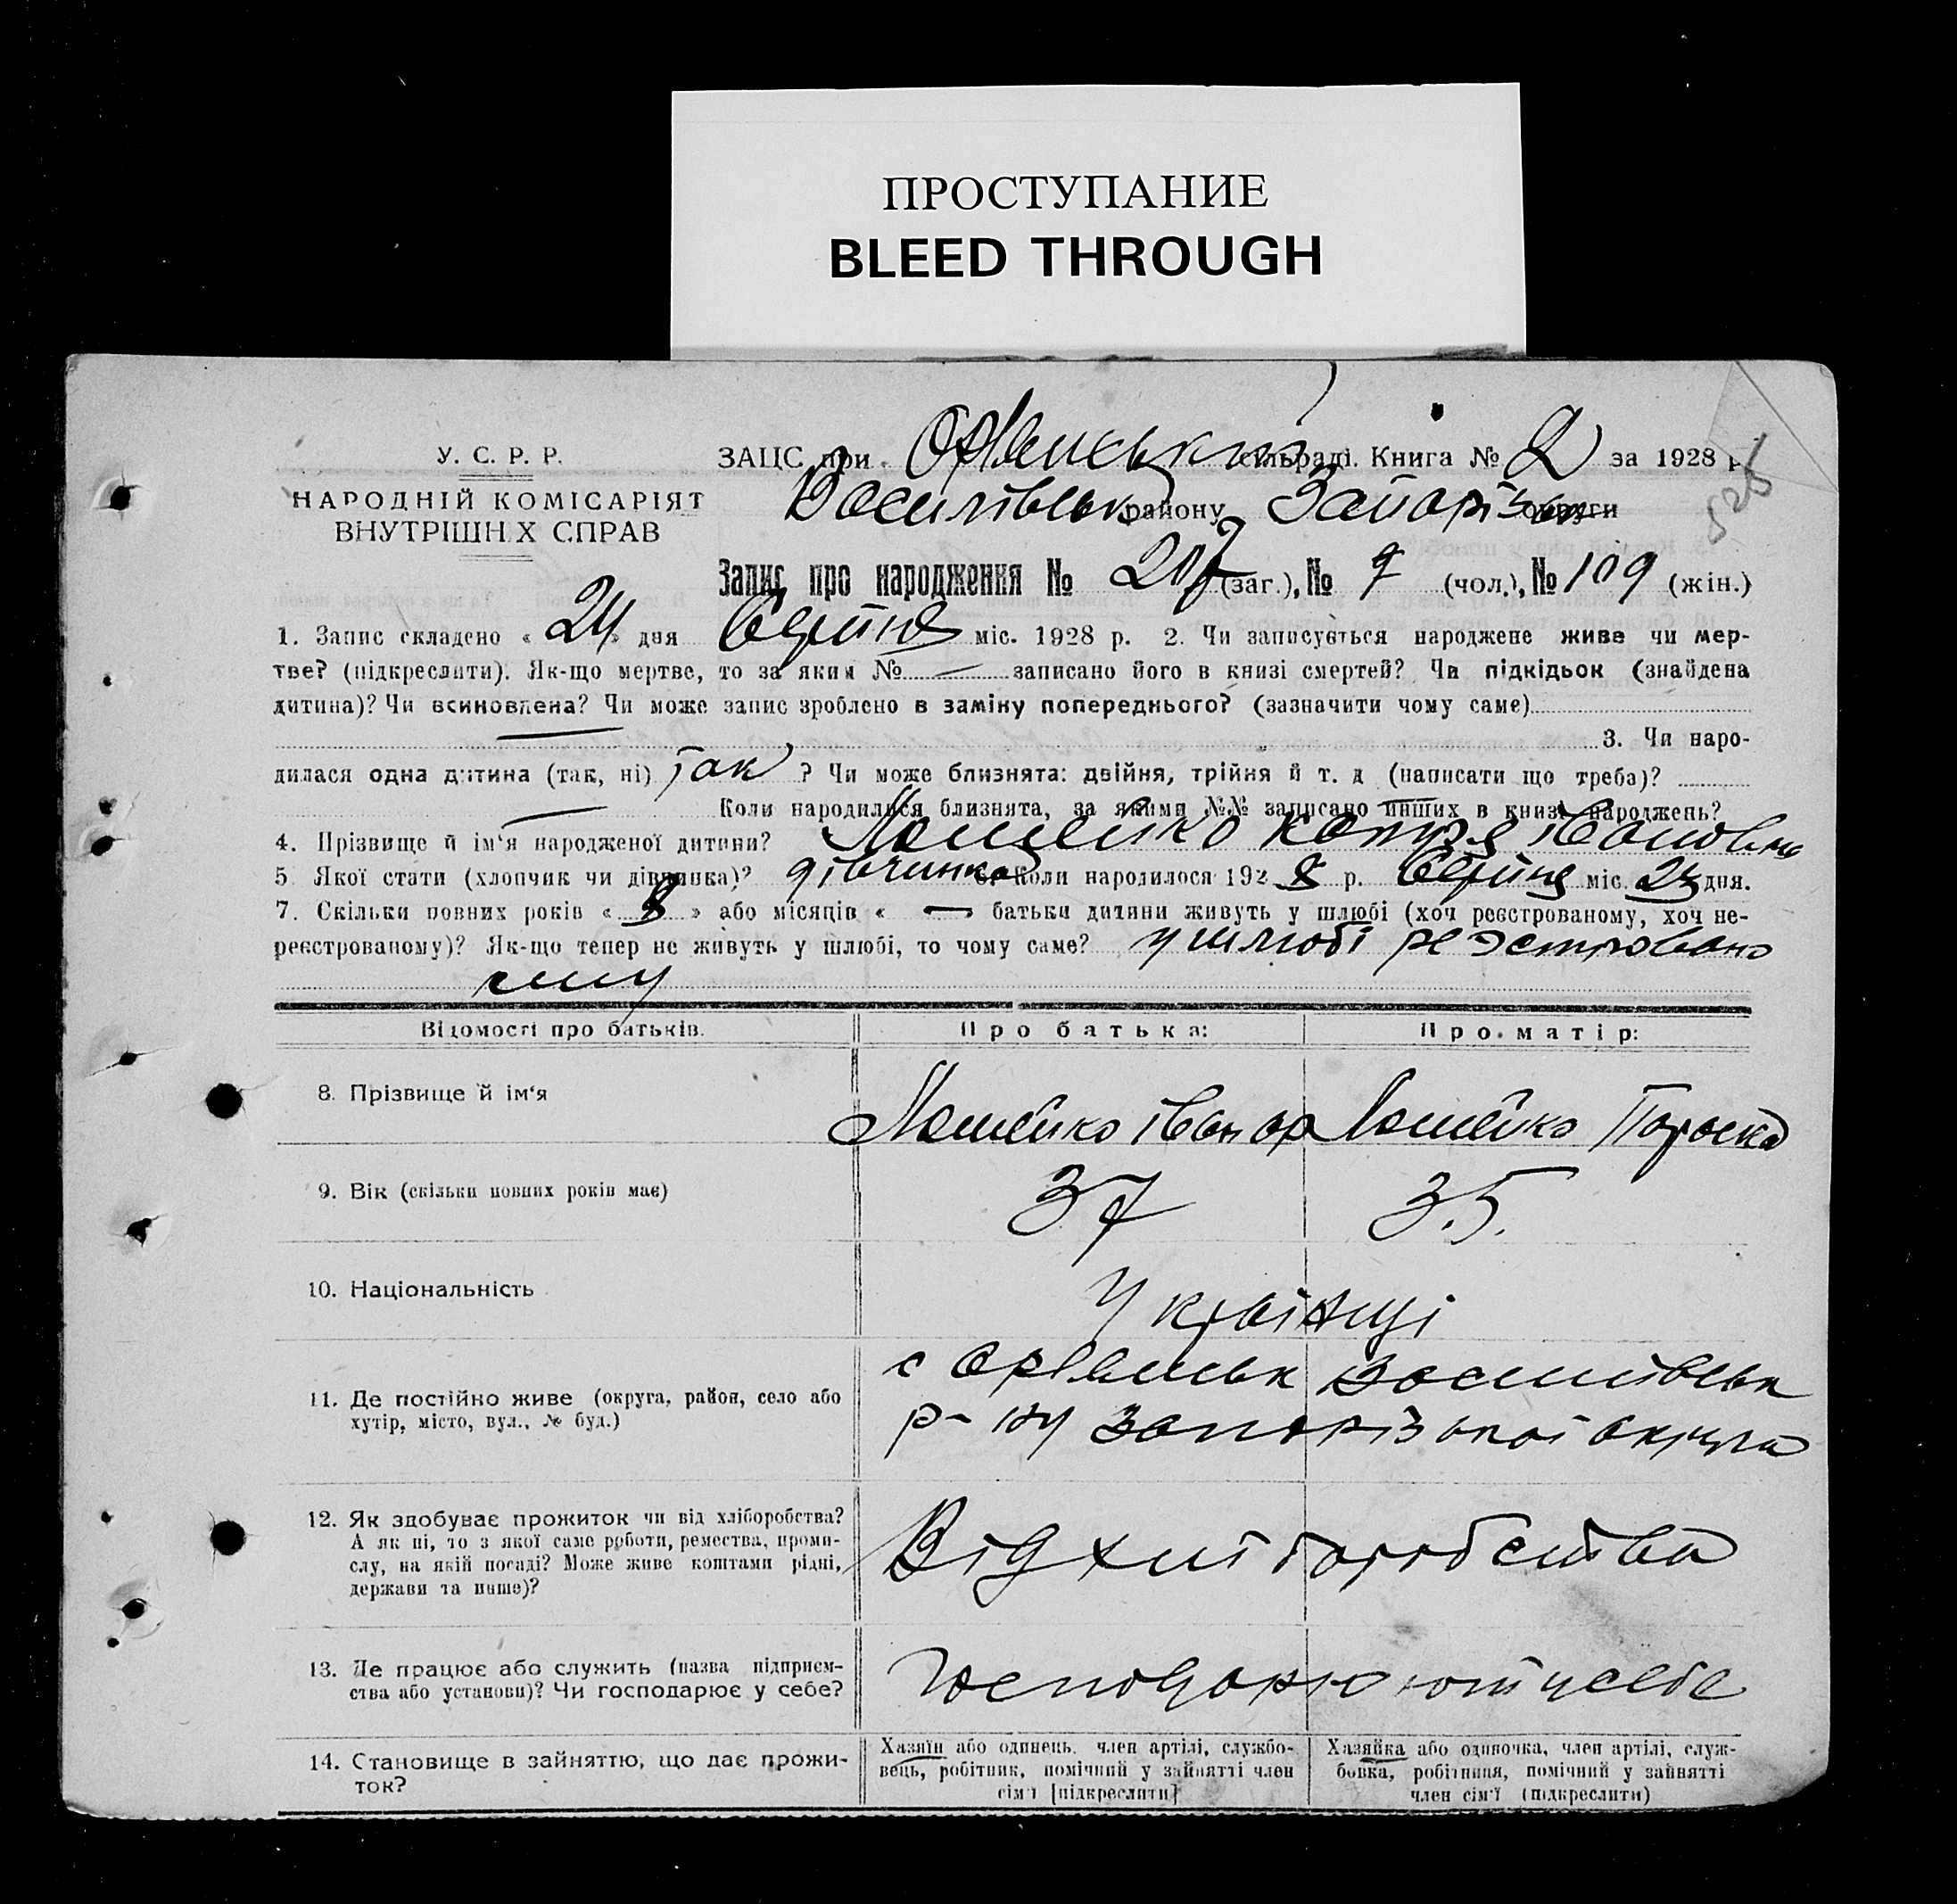 ПРОСТУПАНИЕ
BLEED THROUGH
У. С. Р. Р.
НАРОДНІЙ КОМІСАРІЯТ
ВНУТРІШН Х СПРАВ
ЗАЦС при сільраді. Книга № 2 за 1928 р.
Василівськ району Запорізьк округи
Запис про народження № 207 (заг.), № (чол.), № 109 (жін.)
1. Запис складено « 24 » дня Серпня міс. 1928 р. 2. Чи записується народжене живе чи мер-
тве? (підкреслити). Як-що мертве, то за яким № — записано його в книзі смертей? Чи підкідьок (знайдена
дитина)? Чи всиновлена? Чи може запис зроблено в заміну попереднього? (зазначити чому саме)
— 3. Чи наро-
дилася одна дитина (так, ні) Так ? Чи може близнята: двійня, трійня й т. д (написати що треба)?
— Коли народилися близнята, за якими №№ записано инших в книзі народжень?
4. Прізвище й ім‘я народженої дитини? Івановна
5 Якої стати (хлопчик чи дівчинка)? дівчинка 6. Коли народилося 1928 р. Серпня міс. дня.
7. Скільки повних років « » або місяців « — батьки дитини живуть у шлюбі (хоч реєстрованому, хоч не-
реєстрованому)? Як-що тепер не живуть у шлюбі, то чому саме? у шлюбі реэстровано
му
Відомості про батьків.
Про батька:
Про матір:
8. Прізвище й ім‘я
Іван
Параска
9. Вік (скільки повних років має)
37
35.
10. Національність
Українці
11. Де постійно живе (округа, район, село або
хутір, місто, вул., № буд.)
с Василівськ
р-ну Запорізької округи
12. Як здобуває прожиток чи від хліборобства?
А як ні, то з якої саме роботи, ремества, проми-
слу, на якій посаді? Може живе коштами рідні,
держави та инше)?
Від хліборобства
13. Де працює або служить (назва підприєм-
ства або установи)? Чи господарює у себе?
Господарюют у себе
14. Становище в зайняттю, що дає прожи-
ток?
Хазяїн або одинець, член артілі, службо-
вець, робітник, помічний у зайнятті член
сім‘ї [підкреслити]
Хазяйка або одиночка, член артілі, служ-
бовка, робітниця, помічний у зайнятті
член сім‘ї (підкреслити)